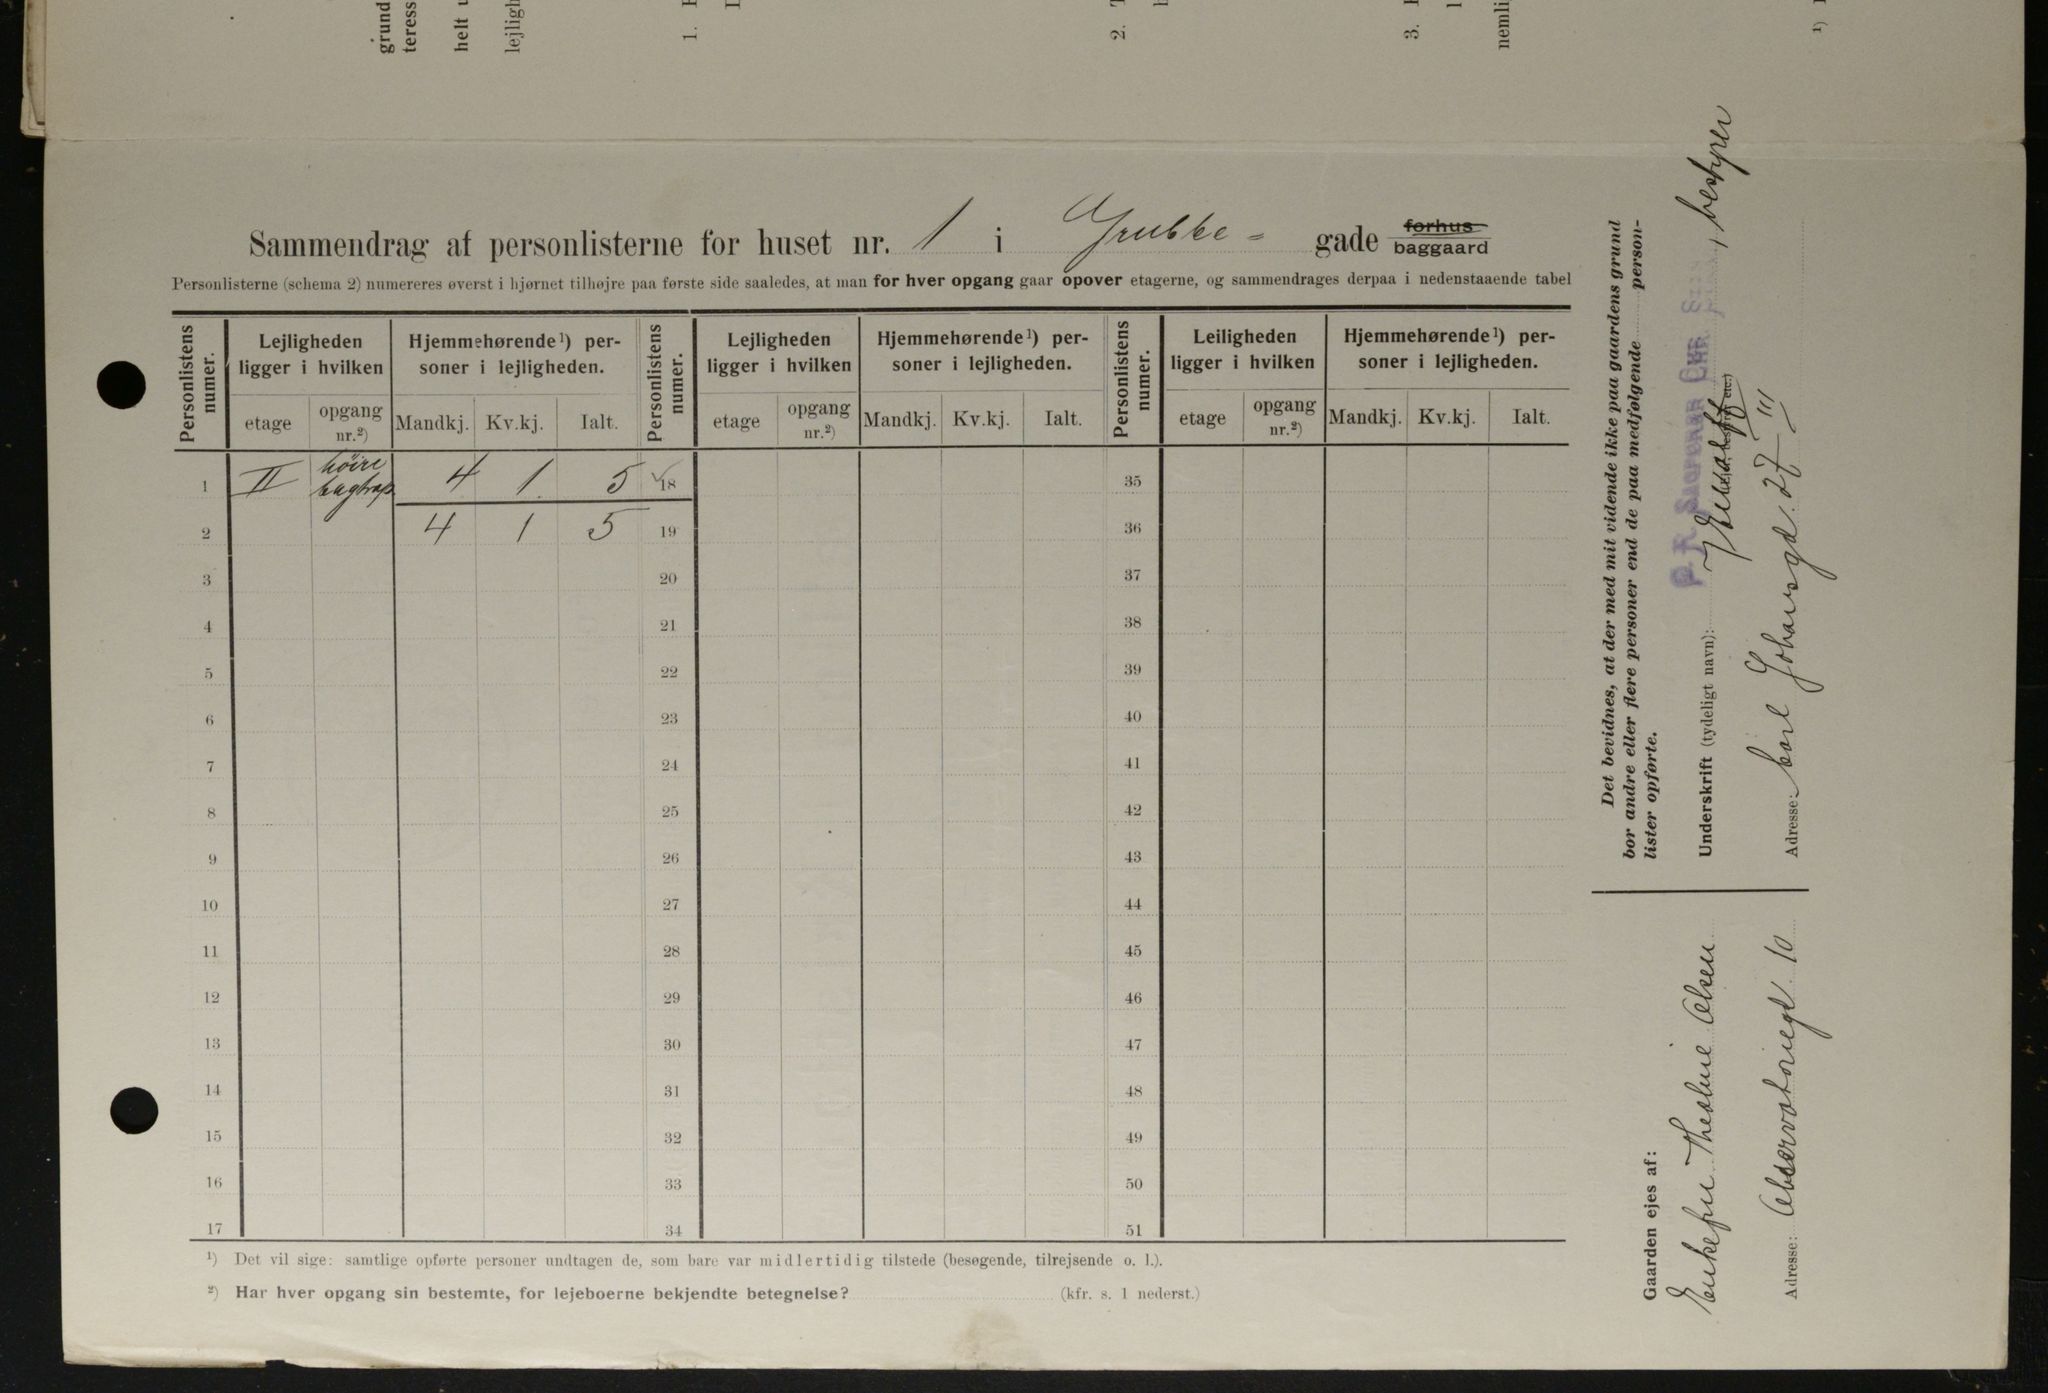 grund
teress
helt u
lejligh
1.
2.
3.
nemli
1)
Sammendrag af personlisterne for huset nr. 1 i Grubbe- gade forhus baggaard
Personlisterne (schema 2) numereres øverst i hjørnet tilhøjre paa første side saaledes, at man for hver opgang gaar opover etagerne, og sammendrages derpaa i nedenstaaende tabel
Personlistens numer. Lejligheden ligger i hvilken Hjemmehørende¹) personer i lejligheden. Personlistens numer. Lejligheden ligger i hvilken Hjemmehørende¹) personer i lejligheden. Personlistens numer. Leiligheden ligger i hvilken Hjemmehørende¹) personer i lejligheden.
etage opgang nr.²) Mandkj. Kv.kj. Ialt. etage opgang nr.²) Mandkj. Kv.kj. Ialt. etage opgang nr.²) Mandkj. Kv.kj. Ialt.
1 II höire bagtrap 4 1 5 18 35
2 4 1 5 19 36
3 20 37
4 21 38
5 22 39
6 23 40
7 24 41
8 25 42
9 26 43
10 27 44
11 28 45
12 29 46
13 30 47
14 31 48
15 32 49
16 33 50
17 34 51
¹) Det vil sige: samtlige opførte personer undtagen de, som bare var midlertidig tilstede (besøgende, tilrejsende o. l.).
²) Har hver opgang sin bestemte, for lejeboerne bekjendte betegnelse? (kfr. s. 1 nederst.)
Det bevidnes, at der med mit vidende ikke paa gaardens grund
bor andre eller flere personer end de paa medfølgende person-
lister opførte.
Underskrift (tydeligt navn): , bestyrer
Adresse: Carl Johansgd. 27 III
Gaarden ejes af:
Enkefru Thealine Olsen
Adresse: Observatoriegt 10